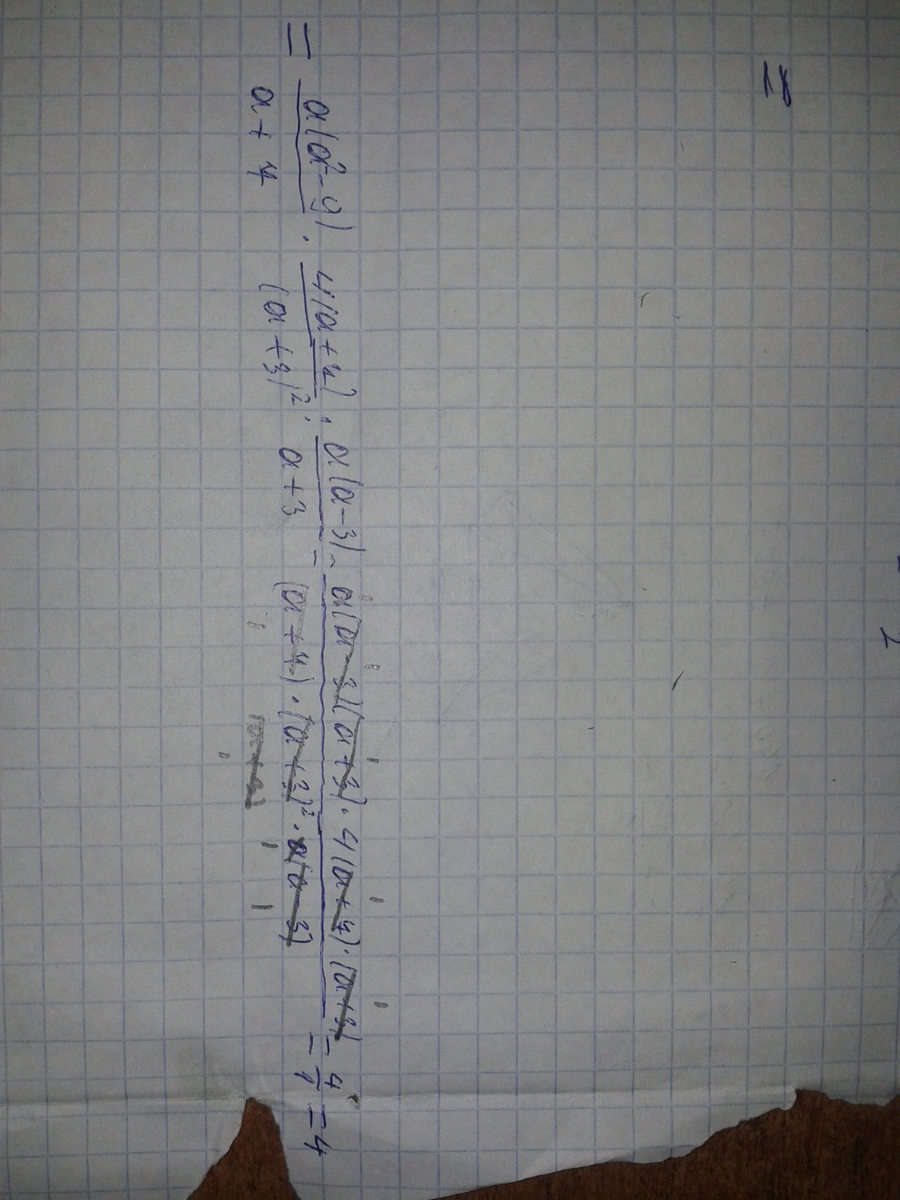 = a(a²-9)/(a+7) · 4(a+7)/(a+3)² : a(a-3)/(a+3) = a(a-3)(a+3) · 4(a+7) · (a+3)/((a+7) · (a+3)² · a(a-3)) = 4/1 = 4